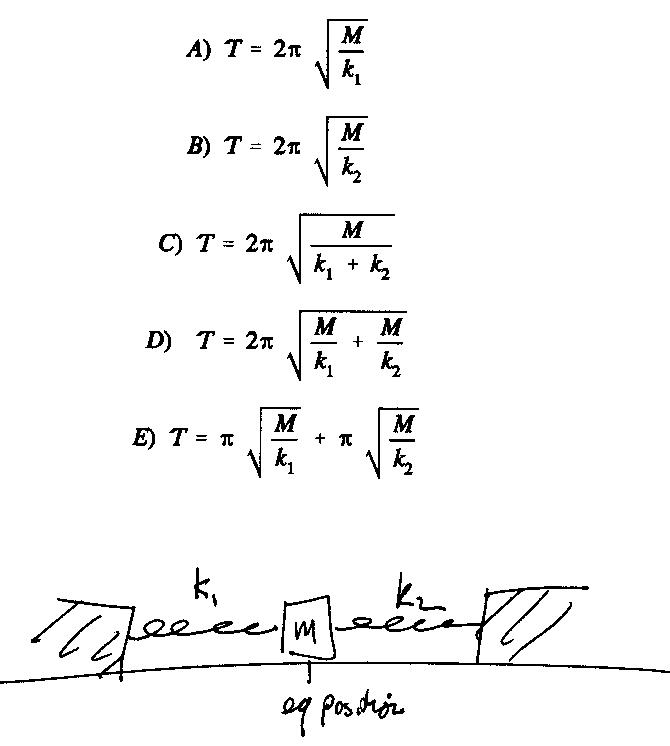 A) T = 2π √(M/k₁)
B) T = 2π √(M/k₂)
C) T = 2π √(M/(k₁ + k₂))
D) T = 2π √(M/k₁ + M/k₂)
E) T = π √(M/k₁) + π √(M/k₂)
k₁ k₂
m
eq position